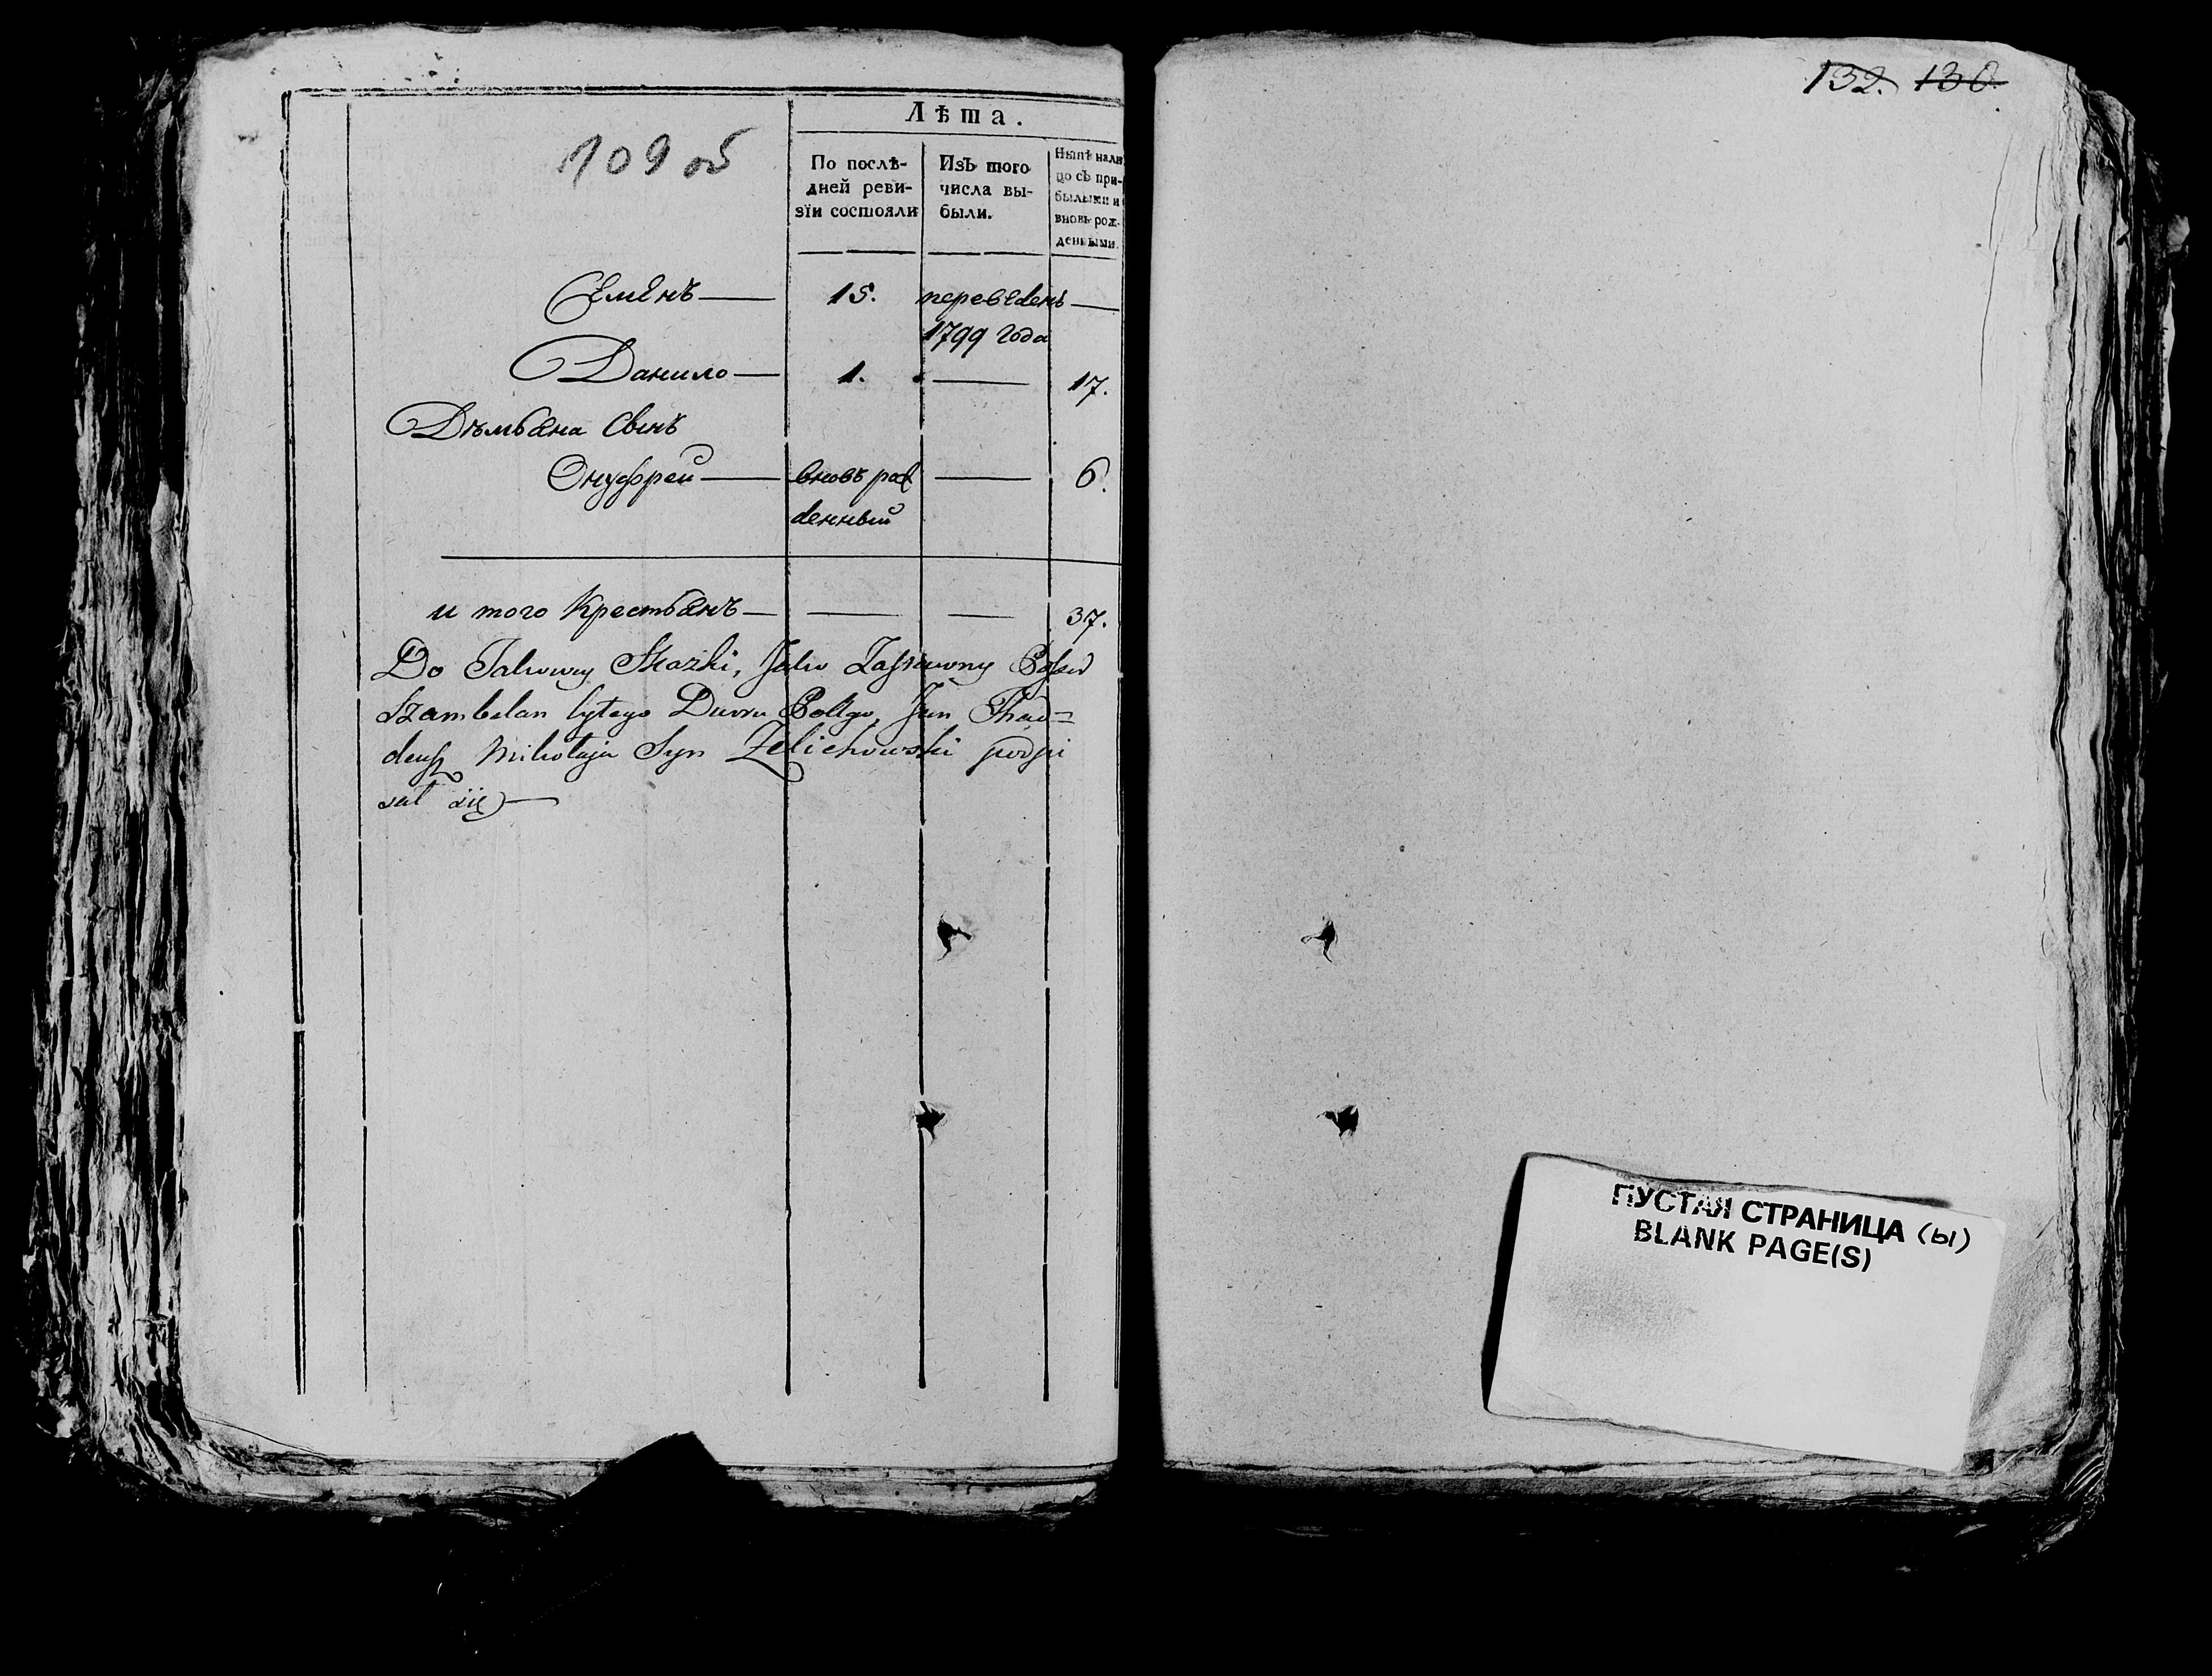 109 об
Лѣта.
По послѣ-
дней реви-
зїи состояли
Изъ того
числа вы-
были.
Нынѣ нали
цо съ при-
былыми и
вновь рож-
денными.
Семенъ — 15. переведенъ —
1799 года
Данило — 1. — 17.
Демьяна Сынъ
Онуфрей — вновь рож — 6.
денный
и того Крестьянъ — — — 37.
Do Takowey Skazki, Jako
Szambelan bytego Dworu Polłgo, Jan Thad=
deusz Mikołaja Syn Zelichowski podpi
sał się —
132. 130
ПУСТАЯ СТРАНИЦА (ы)
BLANK PAGE(S)